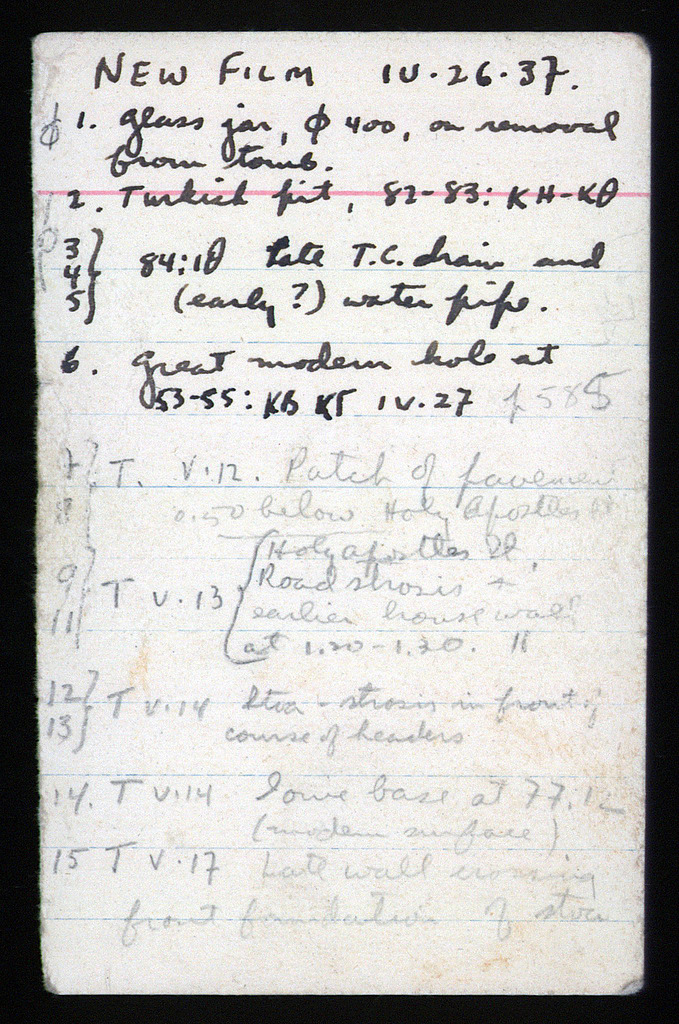 NEW FILM IV·26·37.
φ 1. Glass jar, φ 400, on removal
from tomb.
2. Turkish pit, 82-83: KH-KΘ
3
4 84:1Θ late T.C. drain and
5 (early?) water pipe.
6. Great modern hole at
53-55: KB KΓ IV·27 f 585
7 T. V·12. Patch of pavement
8 0.50 below Holy Apostles
9 Holy Apostles
T V·13 Road strosis +
11 earlier house wall
at 1.20-1.30. 11
12 T V·14 Stoa-strosis in front of
13 course of headers
14. T V·14 Ionic base at 77.
(modern surface)
15 T V·17 Late wall crossing
front foundation of stoa